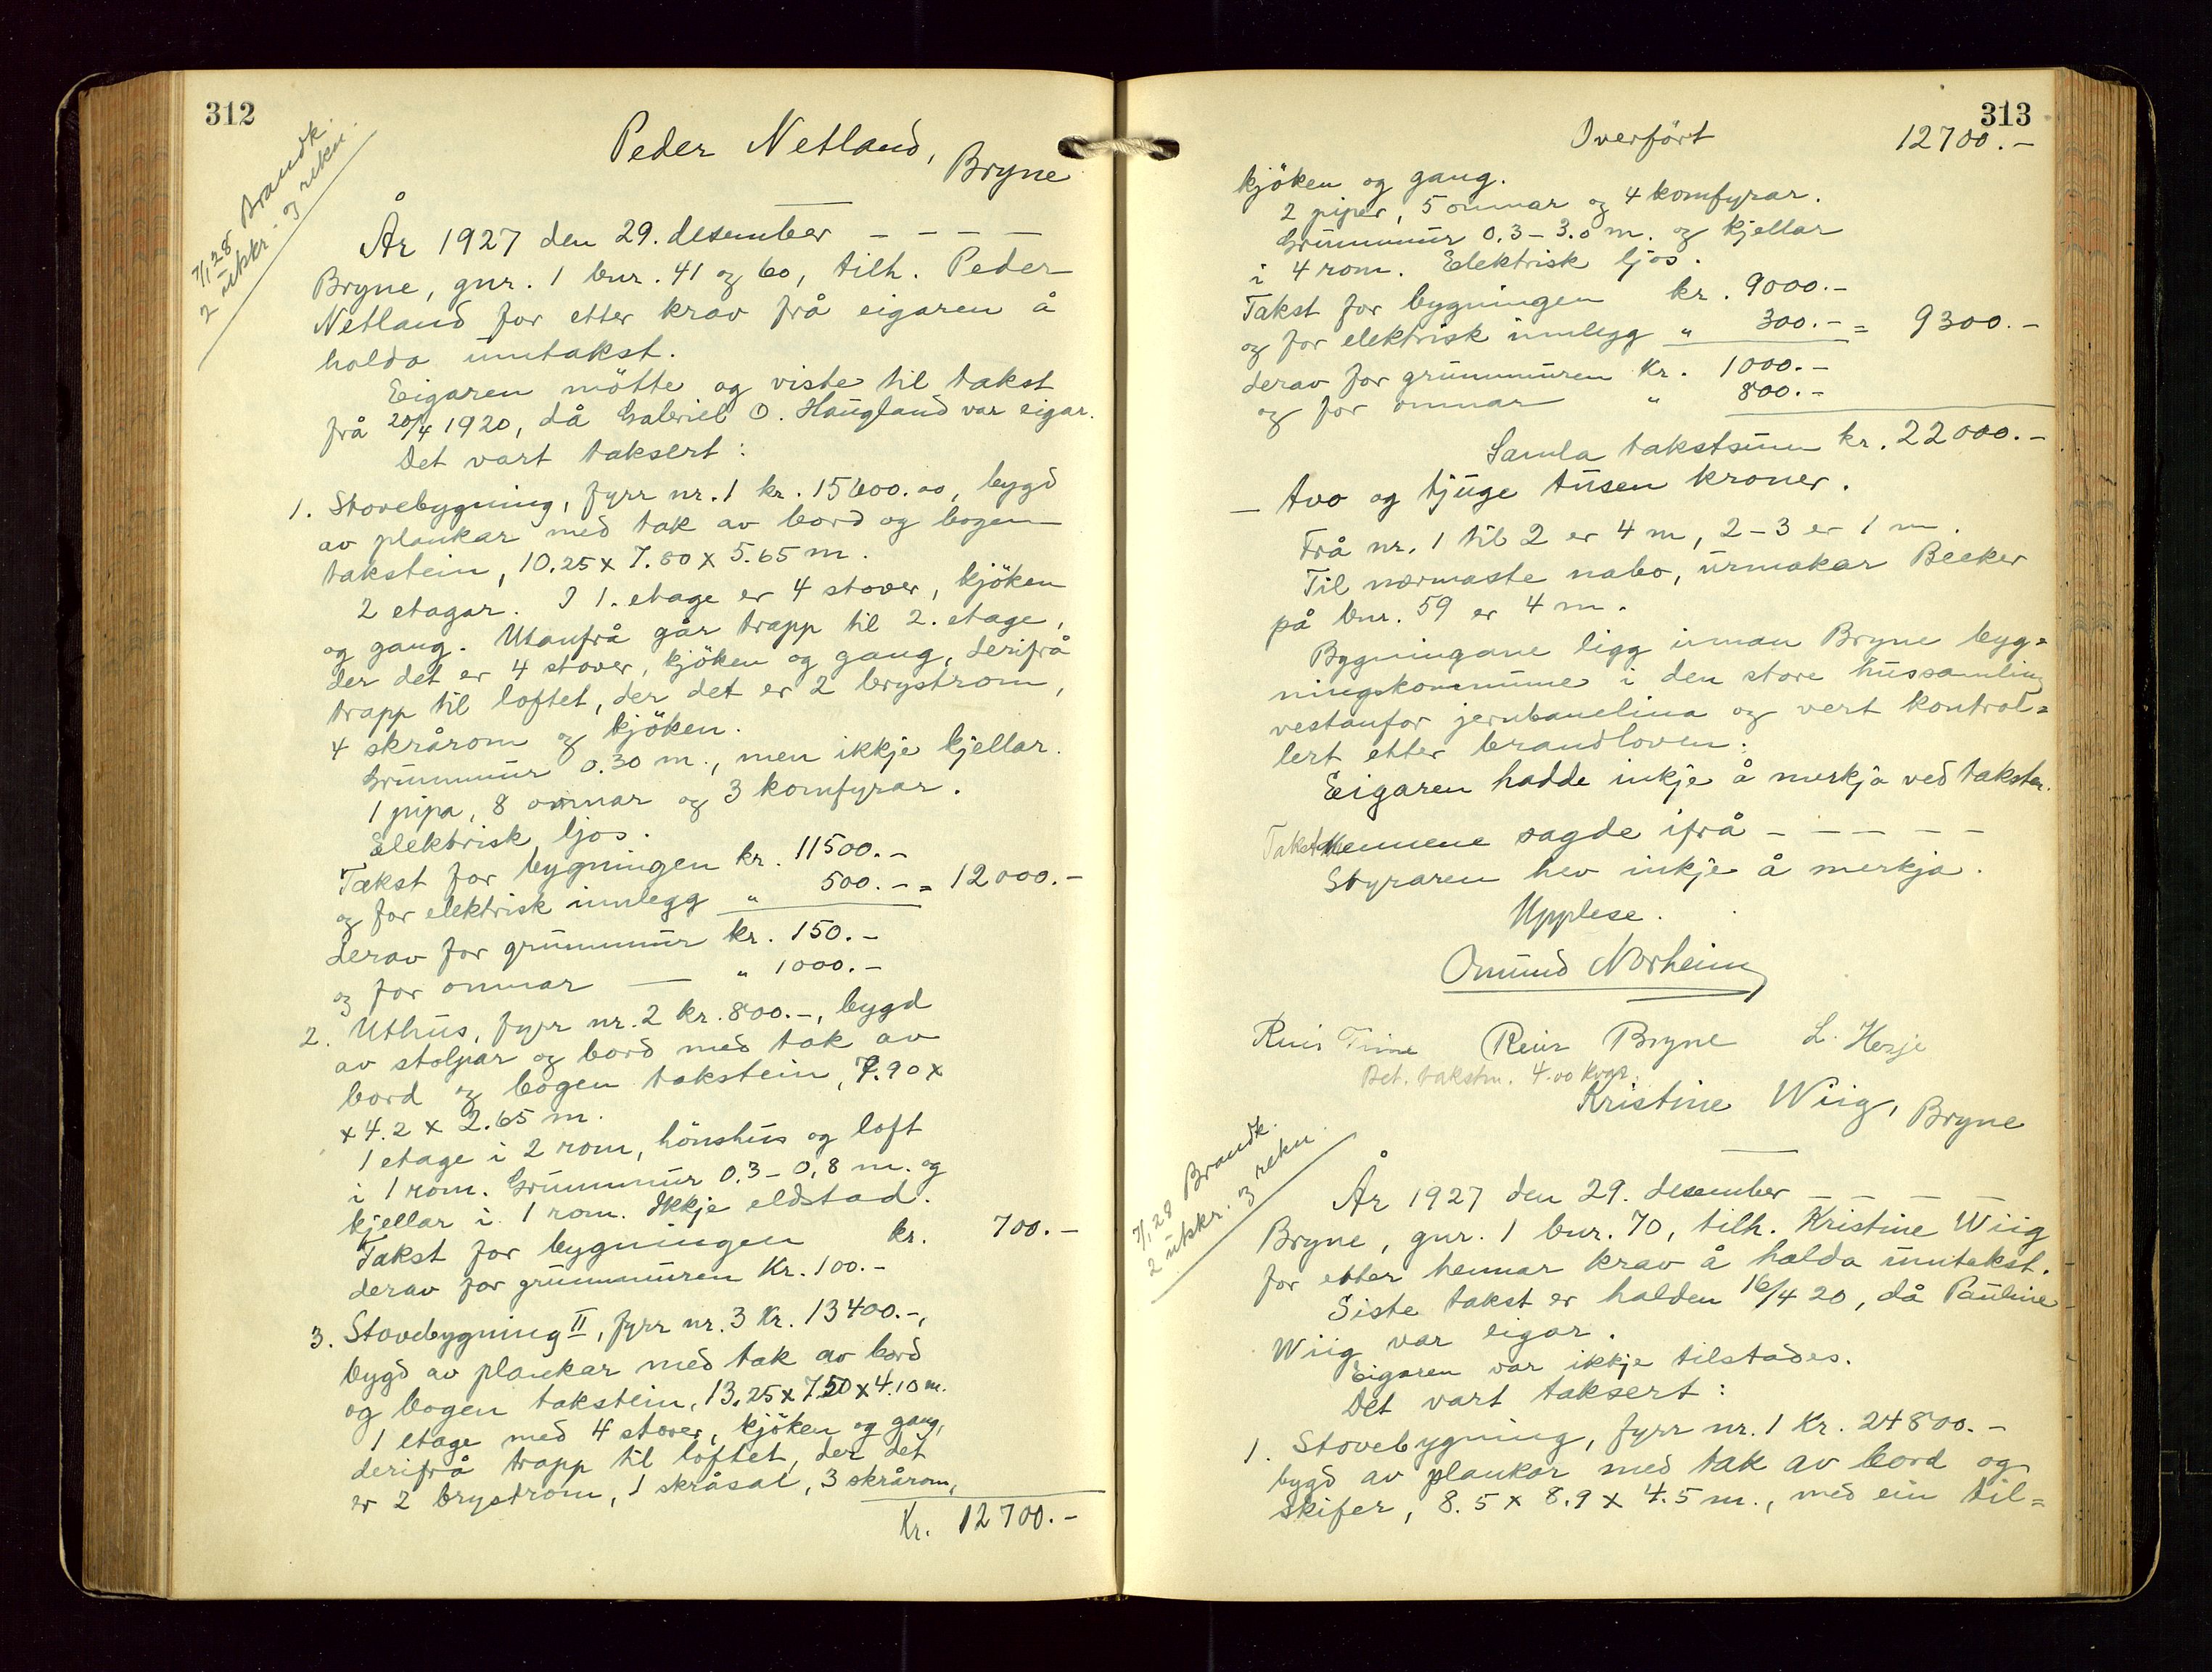 312
7/1 28 Brandk.
2 utskr. og rekn.
Peder Netland,
Bryne
År 1927 den 29. desember - - - -
Bryne, gnr. 1 bnr. 41 og 60, tilh. Peder
Netland for etter krav frå eigaren å
halda umtakst.
Eigaren mötte og viste til takst
frå 20/4 1920, då Gabriel O. Haugland var eigar.
Det vart taksert:
1. Stovebygning, fyrr nr. 1 kr. 15600.00, bygd
av plankar med tak av bord og bogen
takstein, 10.25 x 7.80 x 5.65 m.
2 etagar. I 1. etage er 4 stover, kjöken
og gang. Utanfrå går trapp til 2. etage,
der det er 4 stover, kjöken og gang, derifrå
trapp til loftet, der det er 2 brystrom,
4 skrårom og kjöken.
Grunnmur 0.30 m., men ikkje kjellar.
1 pipa, 8 omnar og 3 komfyrar.
Elektrisk ljos.
Takst for bygningen kr. 11500.-
og for elektrisk innlegg " 500.- = 12000.-
derav for grunnmur kr. 150.-
og for omnar — " 1000.-
2. Uthus, fyrr nr. 2 kr. 800.-, bygd
av stolpar og bord med tak av
bord og bogen takstein, 7.90 x
x 4.2 x 2.65 m.
1 etage i 2 rom, hönshus og loft
i 1 rom. Grunnmur 0.3 - 0,8 m. og
kjellar i 1 rom. Ikkje eldstad.
Takst for bygningen kr. 700.-
derav for grunnmuren Kr. 100.-
3. Stovebygning II, fyrr nr. 3 Kr. 13400.-,
bygd av plankar med tak av bord
og bogen takstein, 13.25 x 7.50 x 4.10 m.
1 etage med 4 stover, kjöken og gang,
derifrå trapp til loftet, der det
er 2 brystrom, 1 skråsal, 3 skrårom,
Kr. 12700.-
313
Overfört 12700.-
kjöken og gang.
2 piper, 5 omnar og 4 komfyrar.
Grunnmur 0.3 - 3.0 m. og kjellar
i 4 rom. Elektrisk ljos.
Takst for bygningen kr. 9000.-
og for elektrisk innlegg " 300.- = 9300.-
derav for grunnmuren Kr. 1000.-
og for omnar " 800.-
Samla takstsum kr. 22000.-
- tvo og tjuge tusen kroner.
Frå nr. 1 til 2 er 4 m, 2-3 er 1 m.
Til nærmaste nabo, urmakar Becker
på bnr. 59 er 4 m.
Bygningane ligg innan Bryne byg=
ningskommune i den store hussamling
vestanfor jernbanelina og vert kontrol=
lert etter brandloven.
Eigaren hadde inkje å merkja ved taksten.
Takstmennene sagde ifrå - - - - -
Styraren hev inkje å merkja.
Upplese.
Omund Norheim
Reier Time Reier Bryne L. Herje
Bet. takstm. 4.00 kvar.
Kristine Wiig,
Bryne
7/1 28 Brandk.
2 utskr. 3 rekn.
År 1927 den 29. desember - - - -
Bryne, gnr. 1 bnr. 70, tilh. Kristine Wiig
for etter hennar krav å halda umtakst.
Siste takst er halden 16/4 20, då Pauline
Wiig var eigar.
Eigaren var ikkje tilstades.
Det vart taksert:
1. Stovebygning, fyrr nr. 1 Kr. 24800.-
bygd av plankar med tak av bord og
skifer, 8.5 x 8.9 x 4.5 m., med ein til=